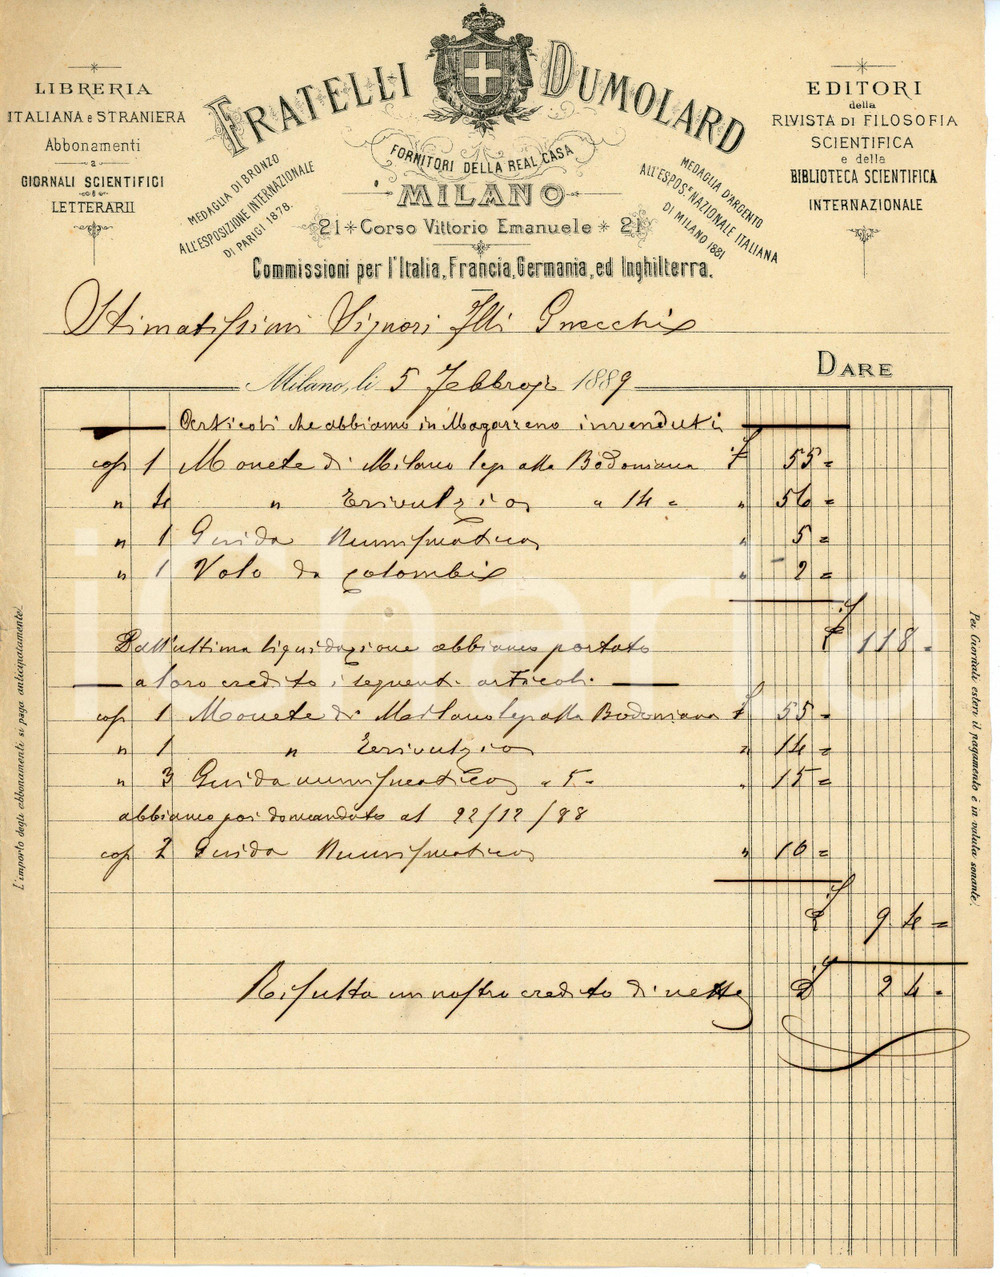 LIBRERIA
ITALIANA e STRANIERA
Abbonamenti
a
GIORNALI SCIENTIFICI
e
LETTERARII
FRATELLI DUMOLARD
FORNITORI DELLA REAL CASA
MILANO
21 * Corso Vittorio Emanuele * 21
MEDAGLIA DI BRONZO
ALL'ESPOSIZIONE INTERNAZIONALE
DI PARIGI 1878.
MEDAGLIA D'ARGENTO
ALL'ESPOS.NE NAZIONALE ITALIANA
DI MILANO 1881
EDITORI
della
RIVISTA DI FILOSOFIA
SCIENTIFICA
e della
BIBLIOTECA SCIENTIFICA
INTERNAZIONALE
Commissioni per l'Italia, Francia, Germania, ed Inghilterra.
Stimatissimi Signori Flli Gnecchi
DARE
Milano, li 5 Febbrajo 1889
Articoli che abbiamo in Magazzeno invenduti
cop 1 Monete di Milano leg alla Bodoniana £ 55 =
" 4 " Trivulzio " 14 = " 56 =
" 1 Guida Numismatica " 5 =
" 1 Volo da colombi " 2 =
£ 118 =
Dall'ultima liquidazione abbiamo portato
a loro credito i seguenti articoli
cop 1 Monete di Milano leg alla Bodoniana £ 55 =
" 1 " Trivulzio " 14 =
" 3 Guida numismatica " 5 = " 15 =
abbiamo poi domandato al 22/12/88
cop 2 Guida Numismatica " 10 =
£ 94 =
Risulta un nostro credito di nette £ 24 =
L'importo degli abbonamenti si paga anticipatamente.
Pei Giornali esteri il pagamento è in valuta sonante.
iCharta